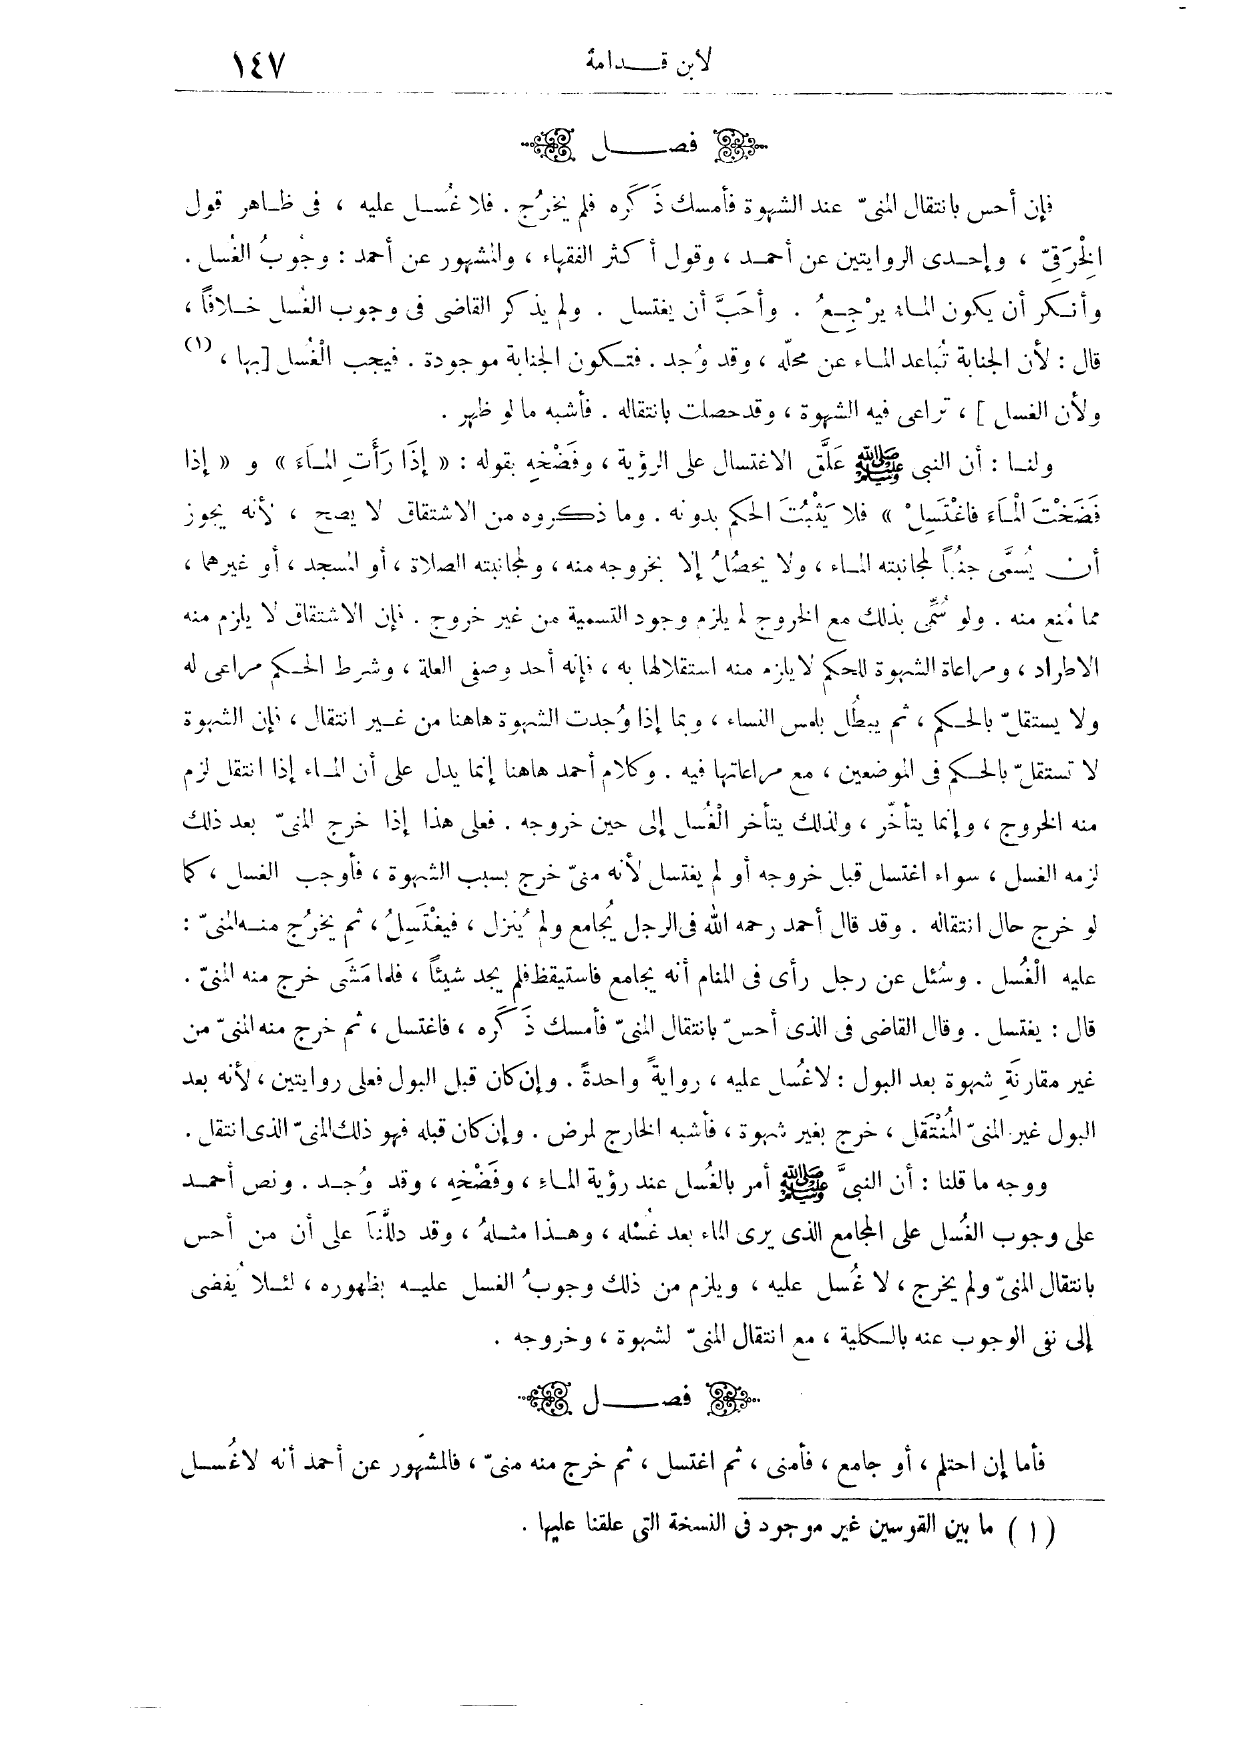 لابن قدامة ١٤٧
فصل
فإن أحس بانتقال المنىّ عند الشهوة فأمسك ذَكَره فلم يخرُج . فلا غُسل عليه ، فى ظاهر قول
الِخْرَقِىّ ، وإحدى الروايتين عن أحمد ، وقول أكثر الفقهاء ، والمشهور عن أحمد : وجُوبُ الغُسل .
وأنكر أن يكون الماء يرْجِعُ . وأحَبَّ أن يغتسل . ولم يذكر القاضى فى وجوب الغُسل خلافاً ،
قال : لأن الجنابة تُباعد الماء عن محلّه ، وقد وُجد . فتكون الجنابة موجودة . فيجب الْغُسل [بها ، (١)
ولأن الغسل ] ، تراعى فيه الشهوة ، وقد حصلت بانتقاله . فأشبه ما لو ظهر .
ولنا : أن النبى ﷺ عَلَّق الاغتسال على الرؤية ، وفَضْخِهِ بقوله : « إذَا رَأَتِ المَاءَ » و « إذا
فَضَخْتَ الْمَاءَ فاغْتَسِلْ » فلا يَثْبُتَ الحكم بدونه . وما ذكروه من الاشتقاق لا يصح ، لأنه يجوز
أن يُسمَّى جنُباً لمجانبته الماء ، ولا يحصُلُ إلا بخروجه منه ، ولمجانبته الصلاة ، أو المسجد ، أو غيرهما ،
مما مُنع منه . ولو سُمِّى بذلك مع الخروج لم يلزم وجود التسمية من غير خروج . فإن الاشتقاق لا يلزم منه
الاطراد ، ومراعاة الشهوة للحكم لا يلزم منه استقلالها به ، فإنه أحد وصفى العلة ، وشرط الحكم مراعى له
ولا يستقلّ بالحكم ، ثم يبطُل بلمس النساء ، وبما إذا وُجدت الشهوة هاهنا من غير انتقال ، فإن الشهوة
لا تستقلّ بالحكم فى الموضعين ، مع مراعاتها فيه . وكلام أحمد هاهنا إنما يدل على أن الماء إذا انتقل لزم
منه الخروج ، وإنما يتأخّر ، ولذلك يتأخر الْغُسل إلى حين خروجه . فعلى هذا إذا خرج المنىّ بعد ذلك
لزمه الغسل ، سواء اغتسل قبل خروجه أو لم يغتسل لأنه منىّ خرج بسبب الشهوة ، فأوجب الغسل ، كما
لو خرج حال انتقاله . وقد قال أحمد رحمه الله فى الرجل يُجامع ولم يُنزل ، فيغْتَسِلُ ، ثم يخرُج منه المنىّ :
عليه الْغُسل . وسُئل عن رجل رأى فى المنام أنه يجامع فاستيقظ فلم يجد شيئاً ، فلما مَشَى خرج منه المنىّ .
قال : يغتسل . وقال القاضى فى الذى أحسّ بانتقال المنىّ فأمسك ذَكَره ، فاغتسل ، ثم خرج منه المنىّ من
غير مقارنَةِ شهوة بعد البول : لا غُسل عليه ، روايةً واحدةً . وإن كان قبل البول فعلى روايتين ، لأنه بعد
البول غير المنىّ المُنْتَقل ، خرج بغير شهوة ، فأشبه الخارج لمرض . وإن كان قبله فهو ذلك المنىّ الذى انتقل .
ووجه ما قلنا : أن النبىَّ ﷺ أمر بالغُسل عند رؤية الماء ، وفَضْخِهِ ، وقد وُجد . ونص أحمد
على وجوب الغُسل على المجامع الذى يرى الماء بعد غُسْله ، وهذا مثلهُ ، وقد دللْنَا على أن من أحس
بانتقال المنىّ ولم يخرج ، لا غُسل عليه ، ويلزم من ذلك وجوبُ الغسل عليه بظهوره ، لئلا يُفضى
إلى نفى الوجوب عنه بالكلية ، مع انتقال المنىّ لشهوة ، وخروجه .
فصل
فأما إن احتلم ، أو جامع ، فأمنى ، ثم اغتسل ، ثم خرج منه منىّ ، فالمشهور عن أحمد أنه لا غُسل
( ١ ) ما بين القوسين غير موجود فى النسخة التى علقنا عليها .